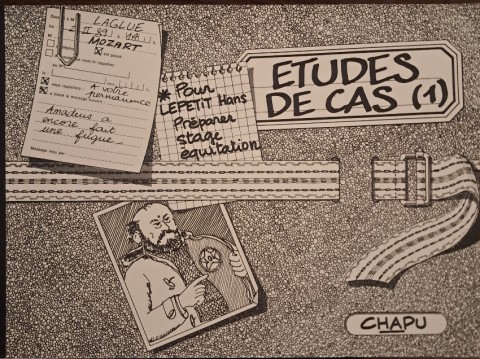 LAGLUE
II 89
MOZART
A votre
permanence
Amadeus a
encore fait
une fugue
* Pour
LEPETIT Hans
Préparer
stage
équitation
ETUDES
DE CAS (1)
CHAPU